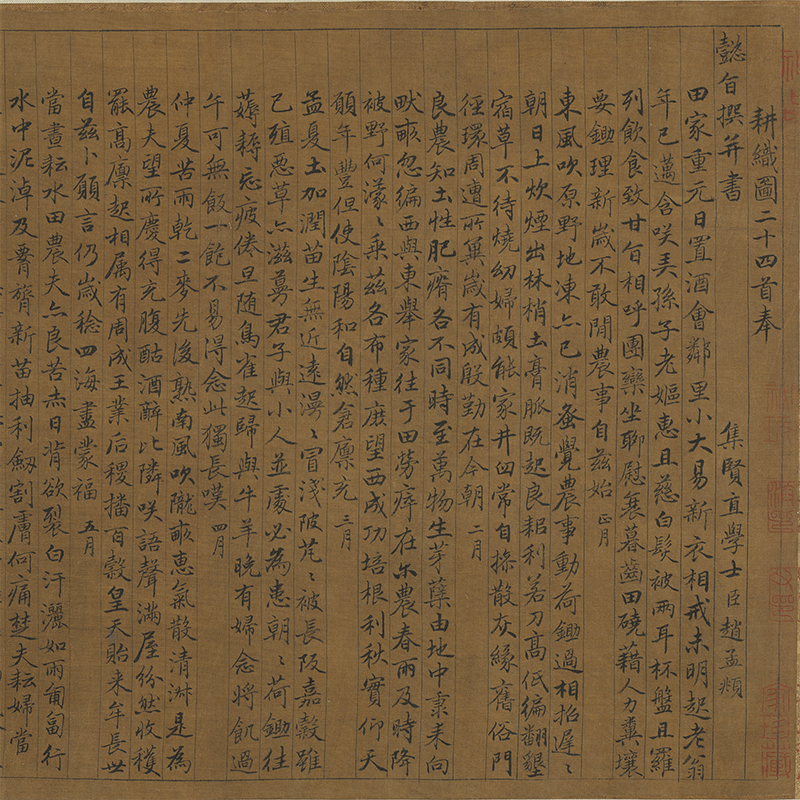 耕織圖二十四首奉　集賢直學士臣趙孟頫
懿旨撰并書
田家重元日置酒會鄰里小大易新衣相戒未明起老翁
年已邁含咲弄孫子老嫗惠且慈白髮被兩耳杯盤且羅
列飲食致甘旨相呼團欒坐聊慰衰暮齒田硗藉人力糞壤
要鋤理新歲不敢閒農事自茲始 正月
東風吹原野地凍亦已消蚤覺農事動荷鋤過相招遲〻
朝日上炊煙出林梢土膏脈既起良耜利若刀高低徧翻墾
宿草不待燒幼婦頗能家井臼常自操散灰緣舊俗門
徑環周遭所冀歲有成殷勤在今朝 二月
良農知土性肥瘠各不同時至萬物生芽蘖由地中秉耒向
畎畝忽徧西與東舉家往于田勞瘁在尓農春雨及時降
被野何濛〻乘茲各布種庶望西成功培根利秋實仰天
願年豐但使陰陽和自然倉廩充 三月
孟夏土加潤苗生無近遠漫〻冒淺陂芃〻被長阪嘉穀雖
已殖惡草亦滋蔓君子與小人並處必為患朝〻荷鋤往
薅耨忘疲倦旦随鳥雀起歸與牛羊晚有婦念將飢過
午可無飯一飽不易得念此獨長嘆 四月
仲夏苦雨乾二麥先後熟南風吹隴畝惠氣散清淑是為
農夫慶所望得充腹酤酒醉比隣咲語聲滿屋紛然收穫
罷髙廩起相属有周成王業后稷播百穀皇天貽来牟長世
自茲卜願言仍歲稔四海盡蒙福 五月
當晝耘水田農夫亦良苦赤日背欲裂白汗灑如雨匍匐行
水中泥淖及胷膂新苗抽利劔割膚何痛楚夫耘婦當